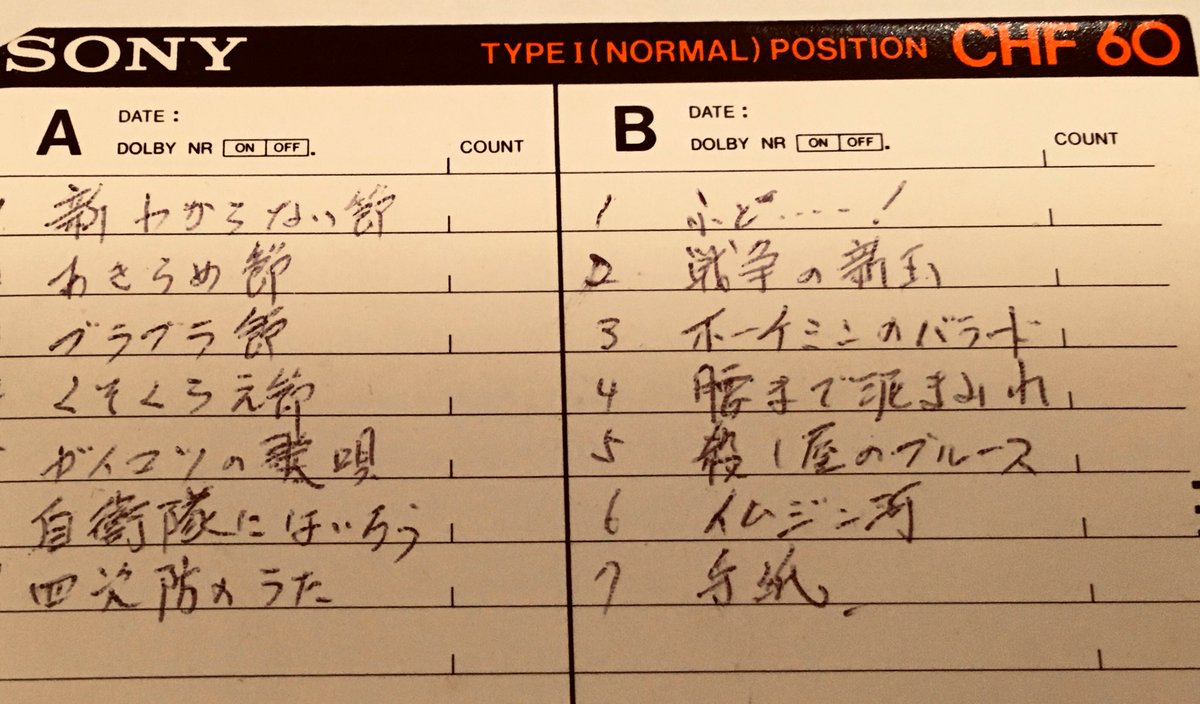 SONY TYPE I (NORMAL) POSITION CHF 60
A DATE :
DOLBY NR ON OFF. COUNT
新わからない節
あきらめ節
ブラブラ節
くそくらえ節
ガイコツの唄
自衛隊にはいろう
四次防のうた
B DATE :
DOLBY NR ON OFF. COUNT
1
2 戦争の新玉
3 ホーチミンのバラード
4 腰まで泥まみれ
5 殺し屋のブルース
6 イムジン河
7 手紙.